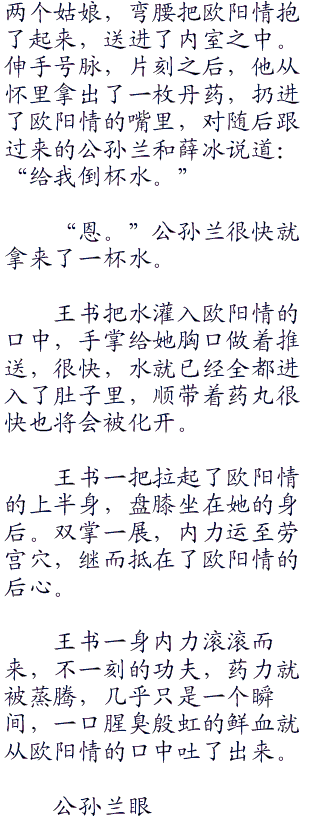 两个姑娘，弯腰把欧阳情抱
了起来，送进了内室之中。
伸手号脉，片刻之后，他从
怀里拿出了一枚丹药，扔进
了欧阳情的嘴里，对随后跟
过来的公孙兰和薛冰说道：
“给我倒杯水。”
“恩。”公孙兰很快就
拿来了一杯水。
王书把水灌入欧阳情的
口中，手掌给她胸口做着推
送，很快，水就已经全都进
入了肚子里，顺带着药丸很
快也将会被化开。
王书一把拉起了欧阳情
的上半身，盘膝坐在她的身
后。双掌一展，内力运至劳
宫穴，继而抵在了欧阳情的
后心。
王书一身内力滚滚而
来，不一刻的功夫，药力就
被蒸腾，几乎只是一个瞬
间，一口腥臭殷虹的鲜血就
从欧阳情的口中吐了出来。
公孙兰眼